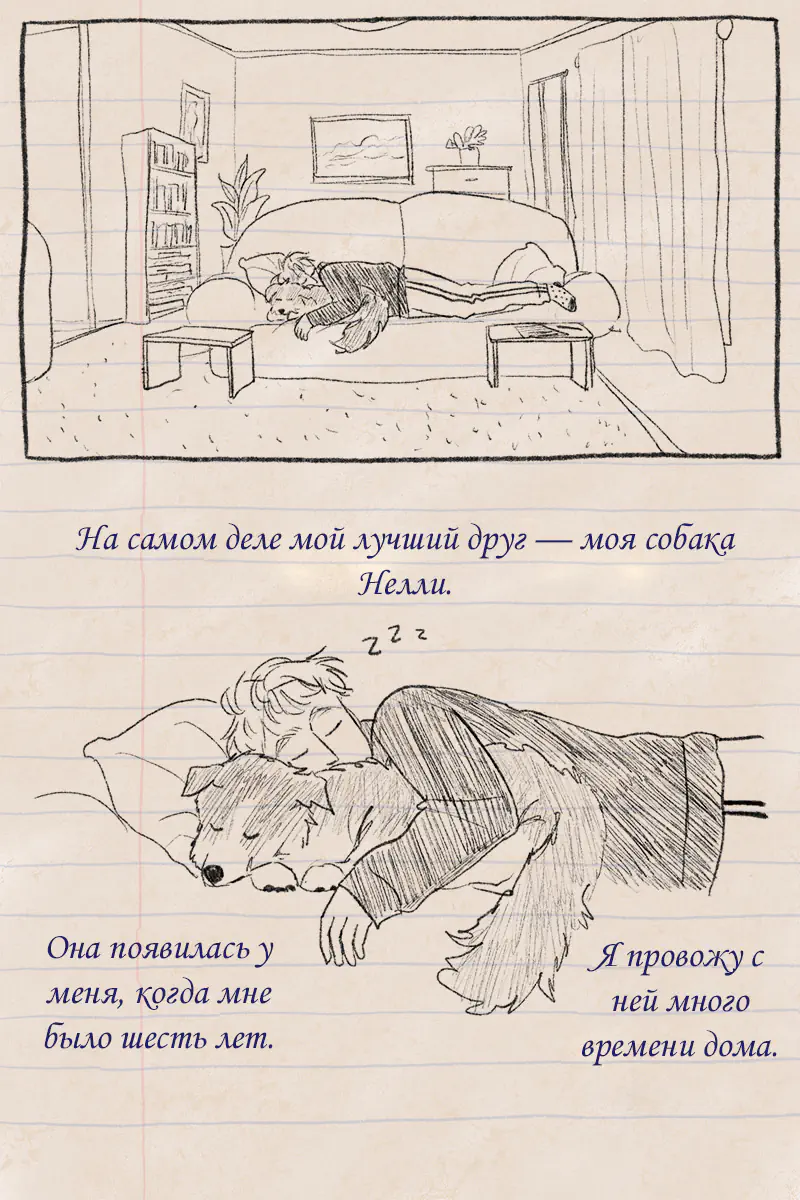 На самом деле мой лучший друг — моя собака
Нелли.
z z z
Она появилась у
меня, когда мне
было шесть лет.
Я провожу с
ней много
времени дома.